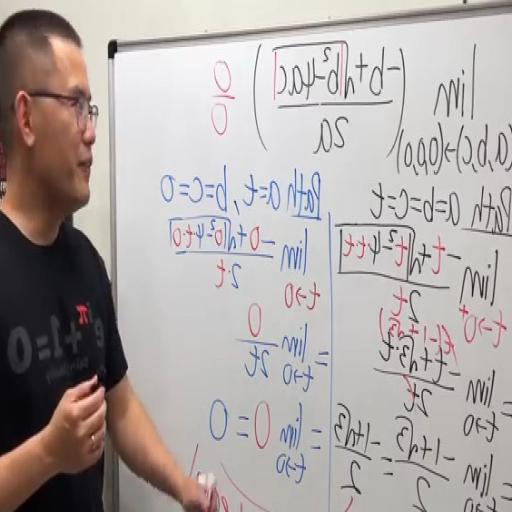 lim (a,b,c)→(0,0,0) ( (-b+√|b²-4ac|) / 2a ) 0/0
Path a=b=c=t
lim t→0⁺ (-t+√|t²-4·t·t|) / 2t
t(-1+√3)
= lim t→0 (-t+√3·t) / 2t
= lim t→0 (-1+√3) / 2 = (-1+√3) / 2
Path a=t, b=c=0
lim t→0 (-0+√|0²-4·t·0|) / 2·t
= lim t→0 0 / 2t
= lim t→0 0 = 0
+1=0